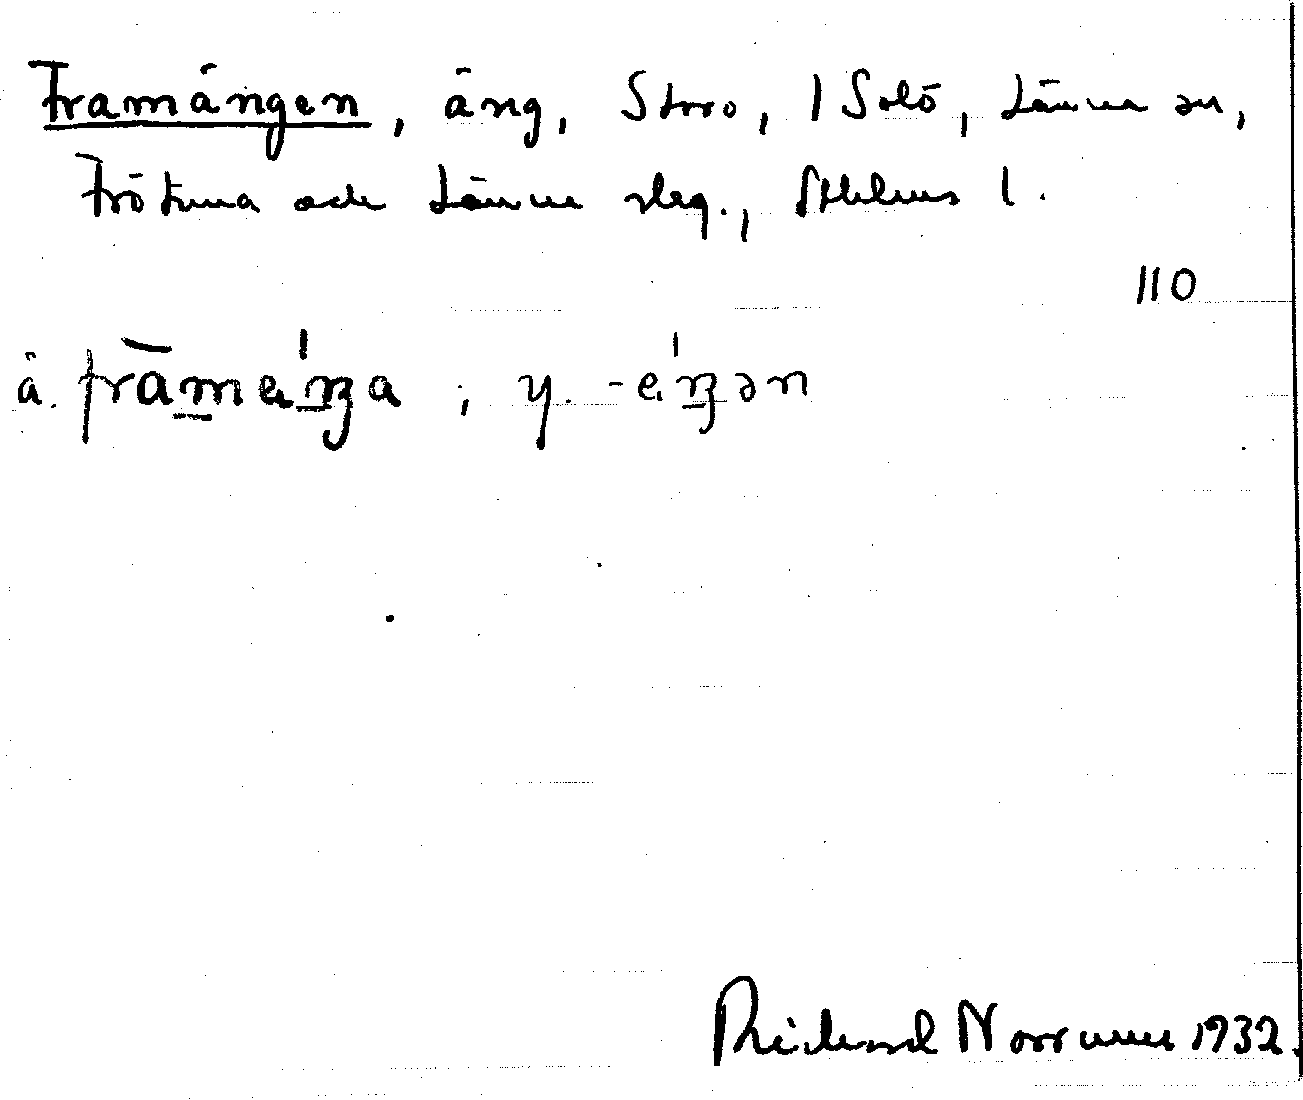 Framängen, äng, Storö, 1 Solö, Länna sn,
Frötuna och Länna slag., Sthlms l.
110
ä. frāmeŋa, y. -eŋən
Rickard Norrman 1932.